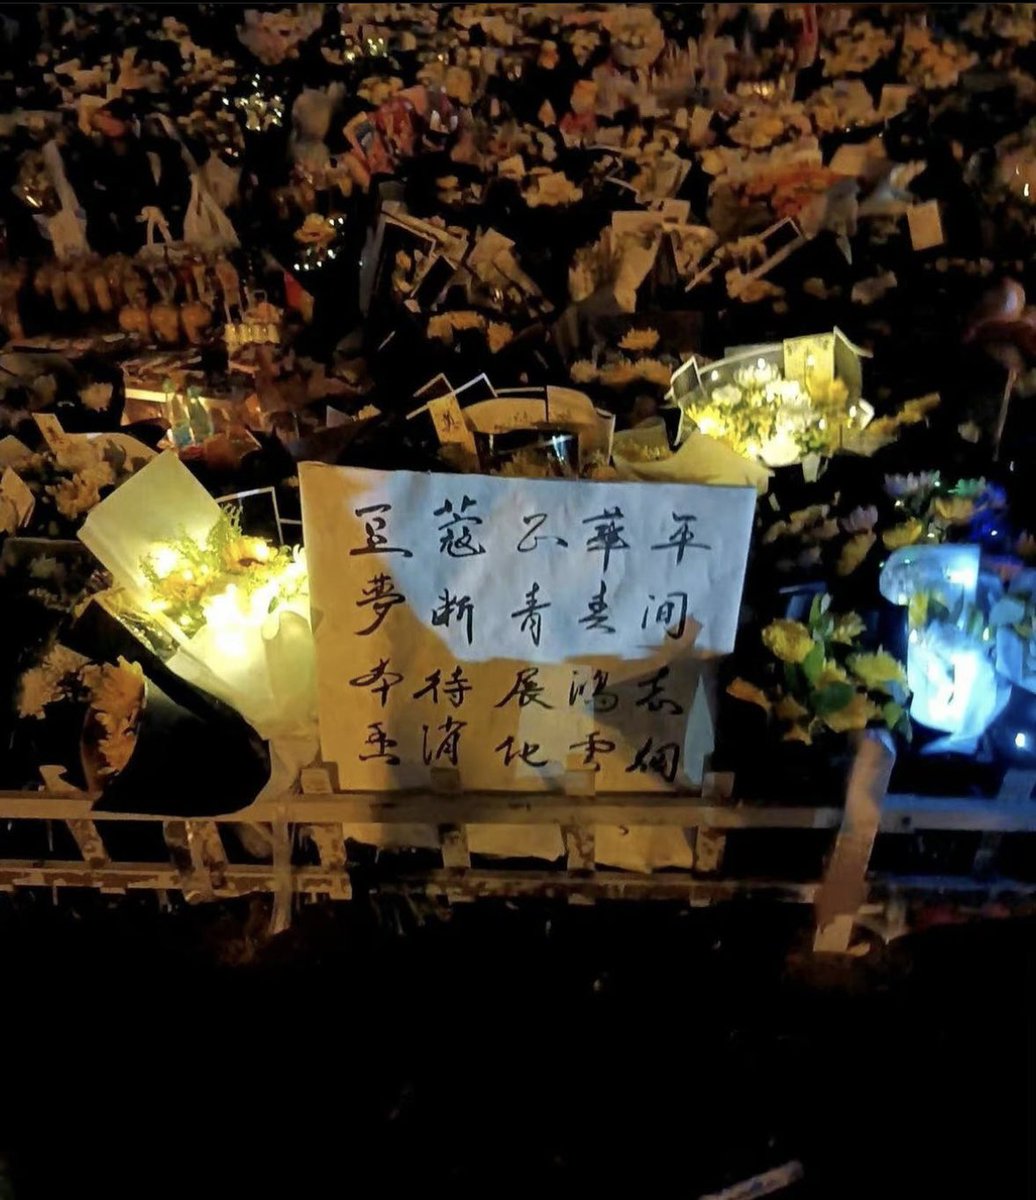 豆蔻正華年
夢断青春间
本待展鴻志
消 雲